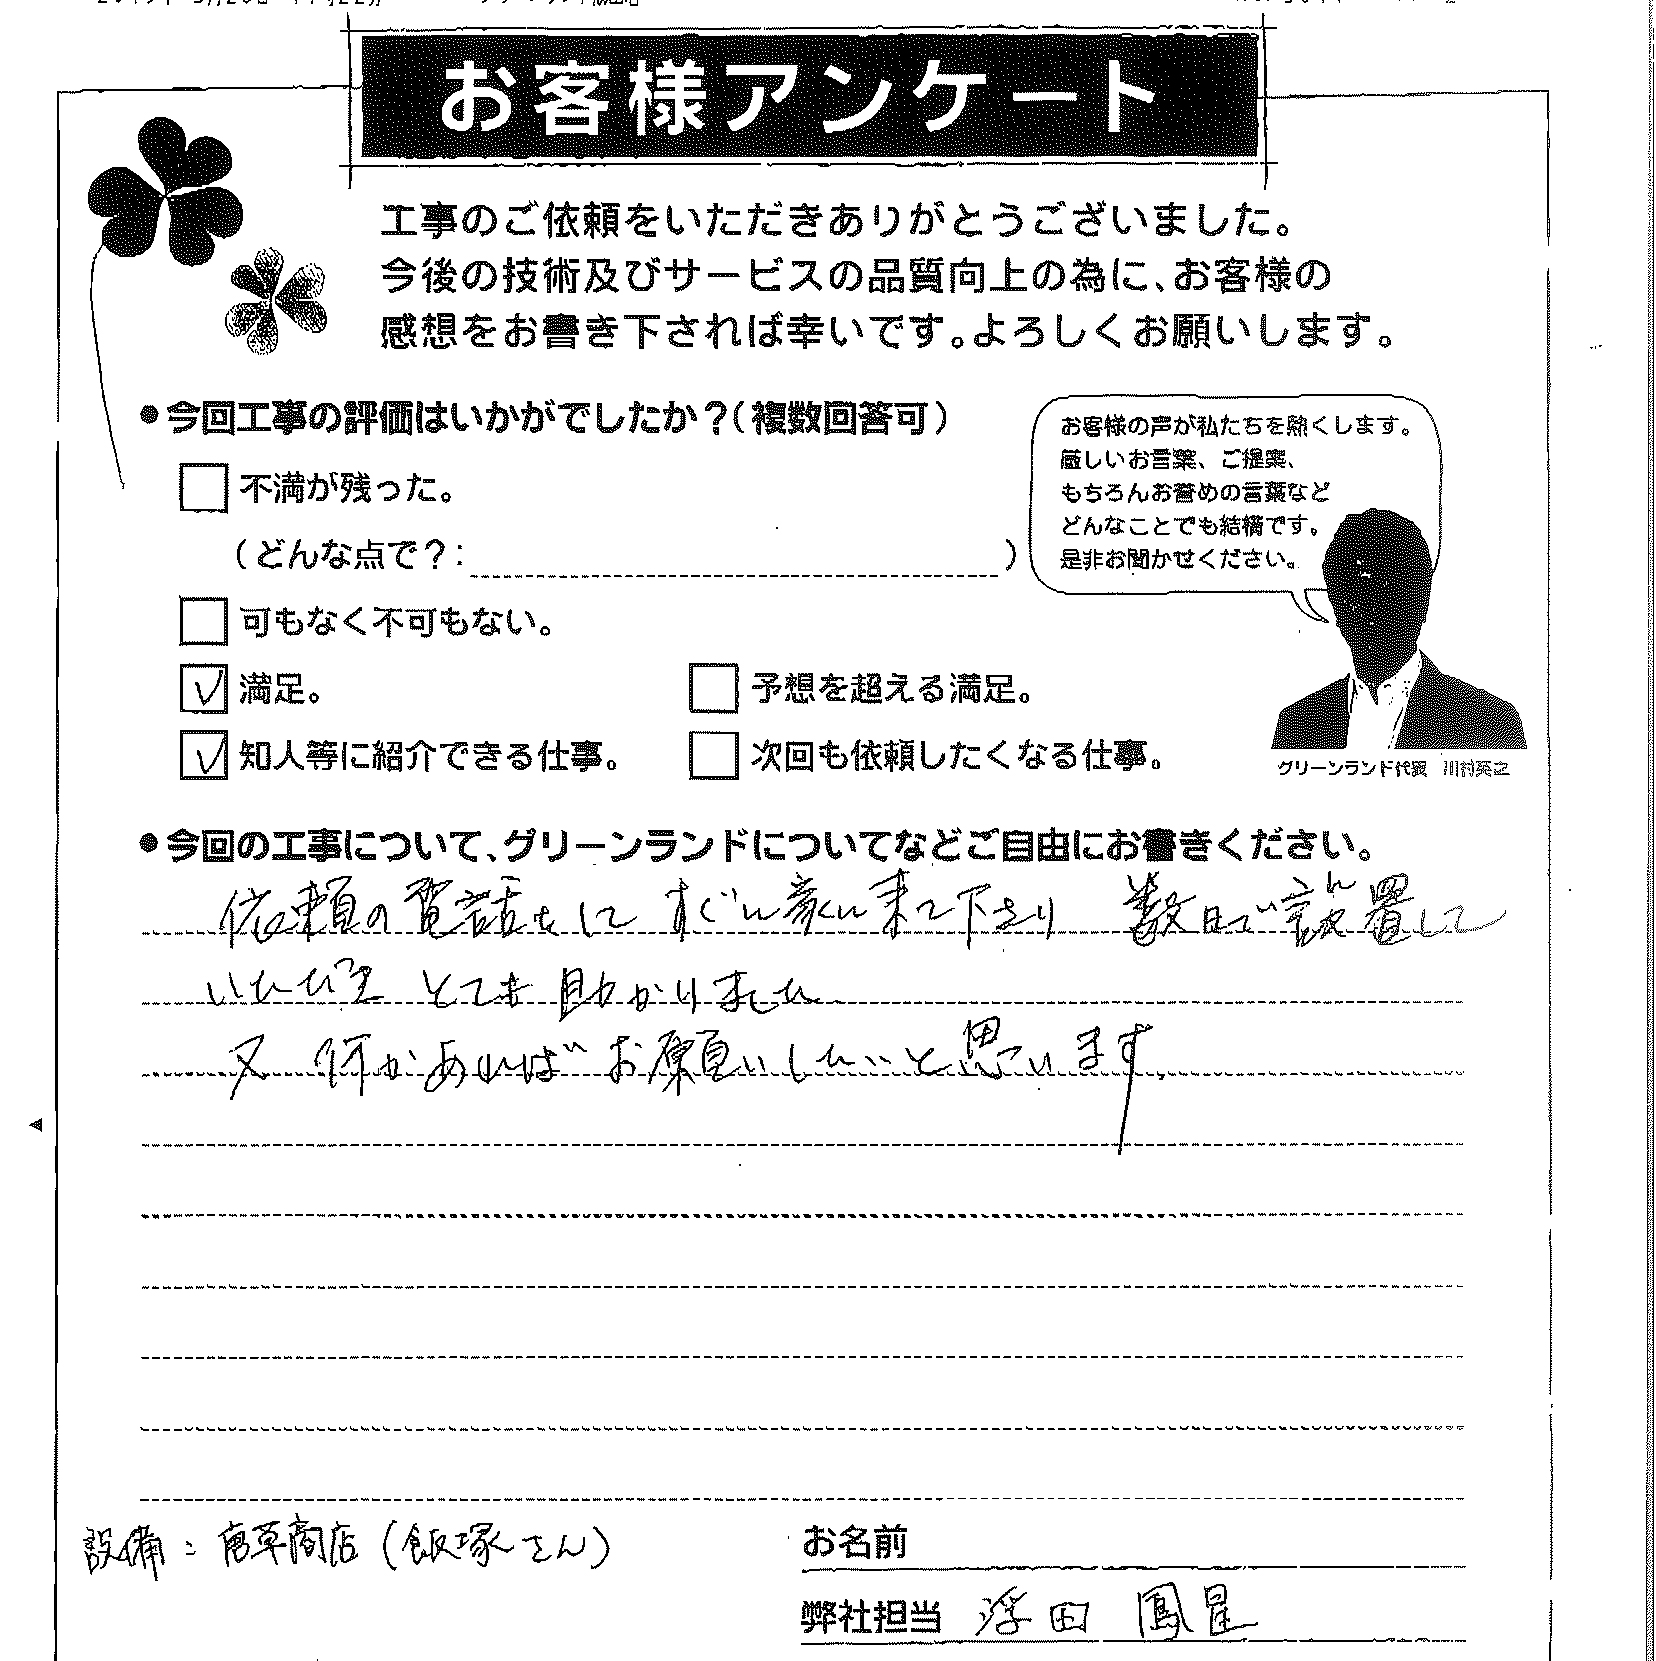 お客様アンケート
工事のご依頼をいただきありがとうございました。
今後の技術及びサービスの品質向上の為に、お客様の
感想をお書き下されば幸いです。よろしくお願いします。
●今回工事の評価はいかがでしたか？（複数回答可）
お客様の声が私たちを熱くします。
厳しいお言葉、ご提案、
もちろんお誉めの言葉など
どんなことでも結構です。
是非お聞かせください。
不満が残った。
（どんな点で？：　）
可もなく不可もない。
満足。
予想を超える満足。
知人等に紹介できる仕事。
次回も依頼したくなる仕事。
グリーンランド代表 川村英之
●今回の工事について、グリーンランドについてなどご自由にお書きください。
依頼の電話をして すぐに家に来て下さり 数日で設置して
いただき とても助かりました
又 何かあればお願いしたいと思います
設備：唐草商店（飯塚さん）
お名前
弊社担当 浮田 鳳星